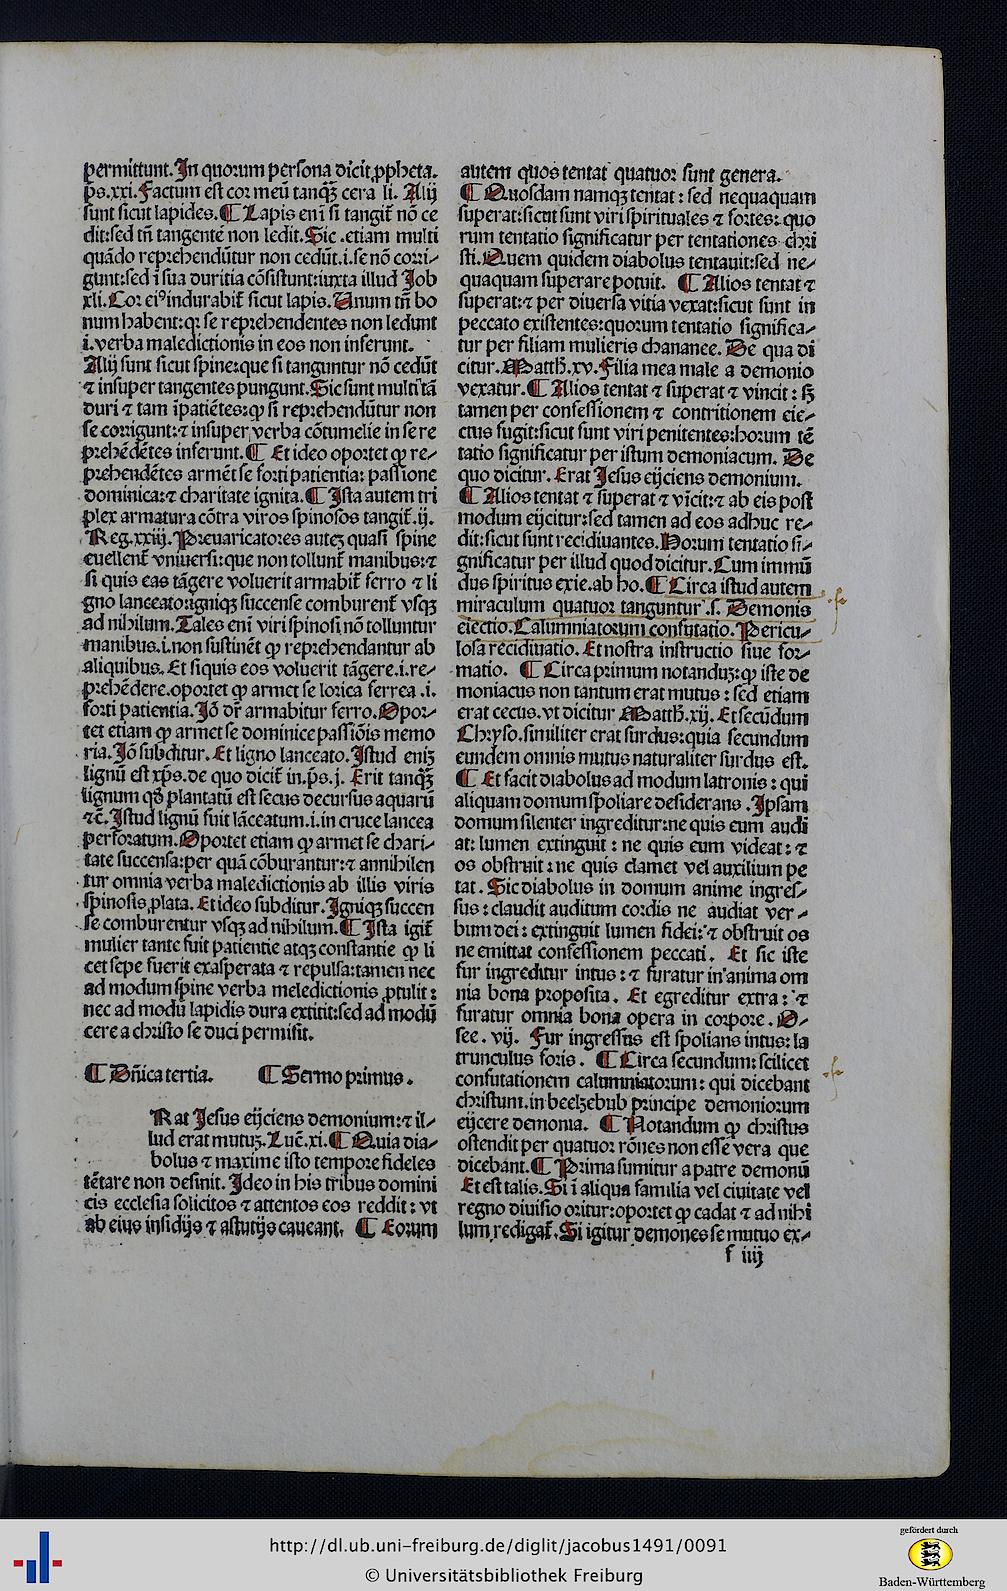 permittunt. In quorum persona dicit ꝓpheta.
ps. xxi. Factum est cor meū tanqꝫ cera li. Alij
sunt sicut lapides. ¶ Lapis eni si tangit᷑ nō ce
dit: sed tn̄ tangentē non ledit. Sic .etiam multi
quādo reprehendūtur non cedūt .i. se nō corri⸗
gunt: sed ī sua duritia cōsistunt: iuxta illud Job
xli. Cor eiꝰ indurabit᷑ sicut lapis. Unum tn̄ bo
num habent: qꝛ se reprehendentes non ledunt
.i. verba maledictionis in eos non inferunt.
Alij sunt sicut spine: que si tanguntur nō cedūt
⁊ insuper tangentes pungunt. Sic sunt multi tā
duri ⁊ tam īpatiētes: ꝙ si reprehendūtur non
se corrigunt: ⁊ insuper verba cōtumelie in se re
prehēdētes inferunt. ¶ Et ideo oportet ꝙ re⸗
prehendētes armēt se forti patientia: passione
dominica: ⁊ charitate ignita. ¶ Ista autem tri
plex armatura cōtra viros spinosos tangit᷑ .ij.
Reg. xxiij. Preuaricatores auteꝫ quasi spine
euellent᷑ vniuersi: que non tollunt᷑ manibus: ⁊
si quis eas tāgere voluerit armabit᷑ ferro ⁊ li
gno lanceato: igniqꝫ succense comburent᷑ vsqꝫ
ad nihilum. Tales eni viri spinosi nō tolluntur
manibus .i. non sustinēt ꝙ reprehendantur ab
aliquibus. Et si quis eos voluerit tāgere .i. re⸗
prehēdere. oportet ꝙ armet se lorica ferrea .i.
forti patientia. Jō dr̄ armabitur ferro. Opor⸗
tet etiam ꝙ armet se dominice passiōis memo
ria. Jō subditur. Et ligno lanceato. Istud eniꝫ
lignū est xp̄s. de quo dicit᷑ in .ps. j. Erit tanqꝫ
lignum qd̄ plantatū est secus decursus aquarū
⁊c̄. Istud lignū fuit lāceatum .i. in cruce lancea
perforatum. Oportet etiam ꝙ armet se chari⸗
tate succensa: per quā cōburantur: ⁊ annihilen
tur omnia verba maledictionis ab illis viris
spinosis ꝓlata. Et ideo subditur. Igniqꝫ succen
se comburentur vsqꝫ ad nihilum. ¶ Ista igit᷑
mulier tante fuit patientie atqꝫ constantie ꝙ li
cet sepe fuerit exasperata ⁊ repulsa: tamen nec
ad modum spine verba meledictionis ꝓtulit:
nec ad modū lapidis dura extitit: sed ad modū
cere a christo se duci permisit.
¶ Dn̄ica tertia. ¶ Sermo primus.
Rat Jesus eijciens demonium: ⁊ il⸗
lud erat mutuꝫ. Luc̄. xi. ¶ Quia dia⸗
bolus ⁊ maxime isto tempore fideles
tētare non desinit. Ideo in his tribus domini
cis ecclesia solicitos ⁊ attentos eos reddit: vt
ab eius insidijs ⁊ astutijs caueant. ¶ Eorum
autem quos tentat quatuor sunt genera.
¶ Quosdam namqꝫ tentat: sed nequaquam
superat: sicut sunt viri spirituales ⁊ fortes: quo
rum tentatio significatur per tentationes chri
sti. Quem quidem diabolus tentauit: sed ne⸗
quaquam superare potuit. ¶ Alios tentat ⁊
superat: ⁊ per diuersa vitia vexat: sicut sunt in
peccato existentes: quorum tentatio significa⸗
tur per filiam mulieris chananee. De qua di
citur. Matth̄. xv. Filia mea male a demonio
vexatur. ¶ Alios tentat ⁊ superat ⁊ vincit: sꝫ
tamen per confessionem ⁊ contritionem eie⸗
ctus fugit: sicut sunt viri penitentes: horum tē
tatio significatur per istum demoniacum. De
quo dicitur. Erat Jesus eijciens demonium.
¶ Alios tentat ⁊ superat ⁊ vīcit: ⁊ ab eis post
modum eijcitur: sed tamen ad eos adhuc re⸗
dit: sicut sunt recidiuantes. Horum tentatio si⸗
gnificatur per illud quod dicitur. Cum immū
dus spiritus exie. ab ho. ¶ Circa istud autem
miraculum quatuor tanguntur .s. Demonis
eiectio. Calumniatorum confutatio. Pericu⸗
losa recidiuatio. Et nostra instructio siue for⸗
matio. ¶ Circa primum notanduꝫ: ꝙ iste de
moniacus non tantum erat mutus: sed etiam
erat cecus. vt dicitur Matth̄. xij. Et secūdum
Chryso. similiter erat surdus: quia secundum
eundem omnis mutus naturaliter surdus est.
¶ Et facit diabolus ad modum latronis: qui
aliquam domum spoliare desiderans. Ipsam
domum silenter ingreditur: ne quis eum audi
at: lumen extinguit: ne quis eum videat: ⁊
os obstruit: ne quis clamet vel auxilium pe
tat. Sic diabolus in domum anime ingres⸗
sus: claudit auditum cordis ne audiat ver⸗
bum dei: extinguit lumen fidei: ⁊ obstruit os
ne emittat confessionem peccati. Et sic iste
fur ingreditur intus: ⁊ furatur in anima om
nia bona proposita. Et egreditur extra: ⁊
furatur omnia bona opera in corpore. O⸗
see. vij. Fur ingressus est spolians intus: la
trunculus foris. ¶ Circa secundum: scilicet
confutationem calumniatorum: qui dicebant
christum. in beelzebub principe demoniorum
eijcere demonia. ¶ Notandum ꝙ christus
ostendit per quatuor rōnes non esse vera que
dicebant. ¶ Prima sumitur a patre demonū
Et est talis. Si ī aliqua familia vel ciuitate vel
regno diuisio oritur: oportet ꝙ cadat ⁊ ad nihi
lum redigat᷑. Si igitur demones se mutuo ex⸗
f iiij
http://dl.ub.uni-freiburg.de/diglit/jacobus1491/0091
© Universitätsbibliothek Freiburg
gefördert durch
Baden-Württemberg